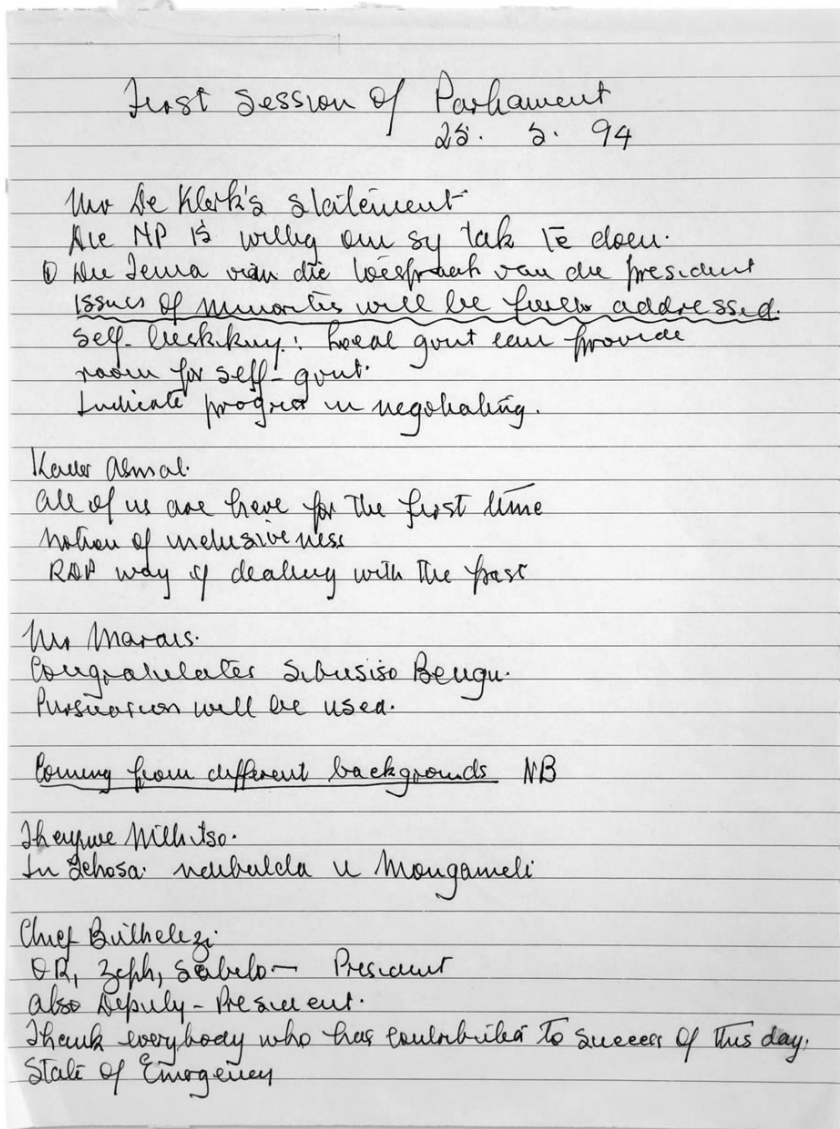 First Session of Parliament
25. 5. 94
Mr De Klerk's statement
Die NP is willig om sy tak te doen.
① Die Tema van die toespraak van die president
Issues of minorities will be further addressed.
Self-beskikking: Local govt can provide
room for self-govt.
Indicate progress in negotiating.
Kader Asmal.
All of us are here for the first time
Notion of inclusiveness
RDP way of dealing with the past
Mr Marais.
Congratulates Sibusiso Bengu.
Persuasion will be used.
Coming from different backgrounds NB
In Xhosa. ndibulela u Mongameli
Chief Buthelezi.
OR, Zeph, Sabelo — President
also Deputy-President.
Thank everybody who has contributed to success of this day.
State of Emergency